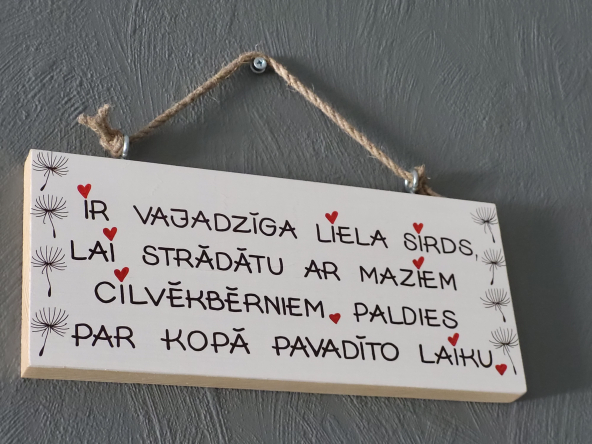 IR VAJADZĪGA LIELA SIRDS,
LAI STRĀDĀTU AR MAZIEM
CILVĒKBĒRNIEM. PALDIES
PAR KOPĀ PAVADĪTO LAIKU.